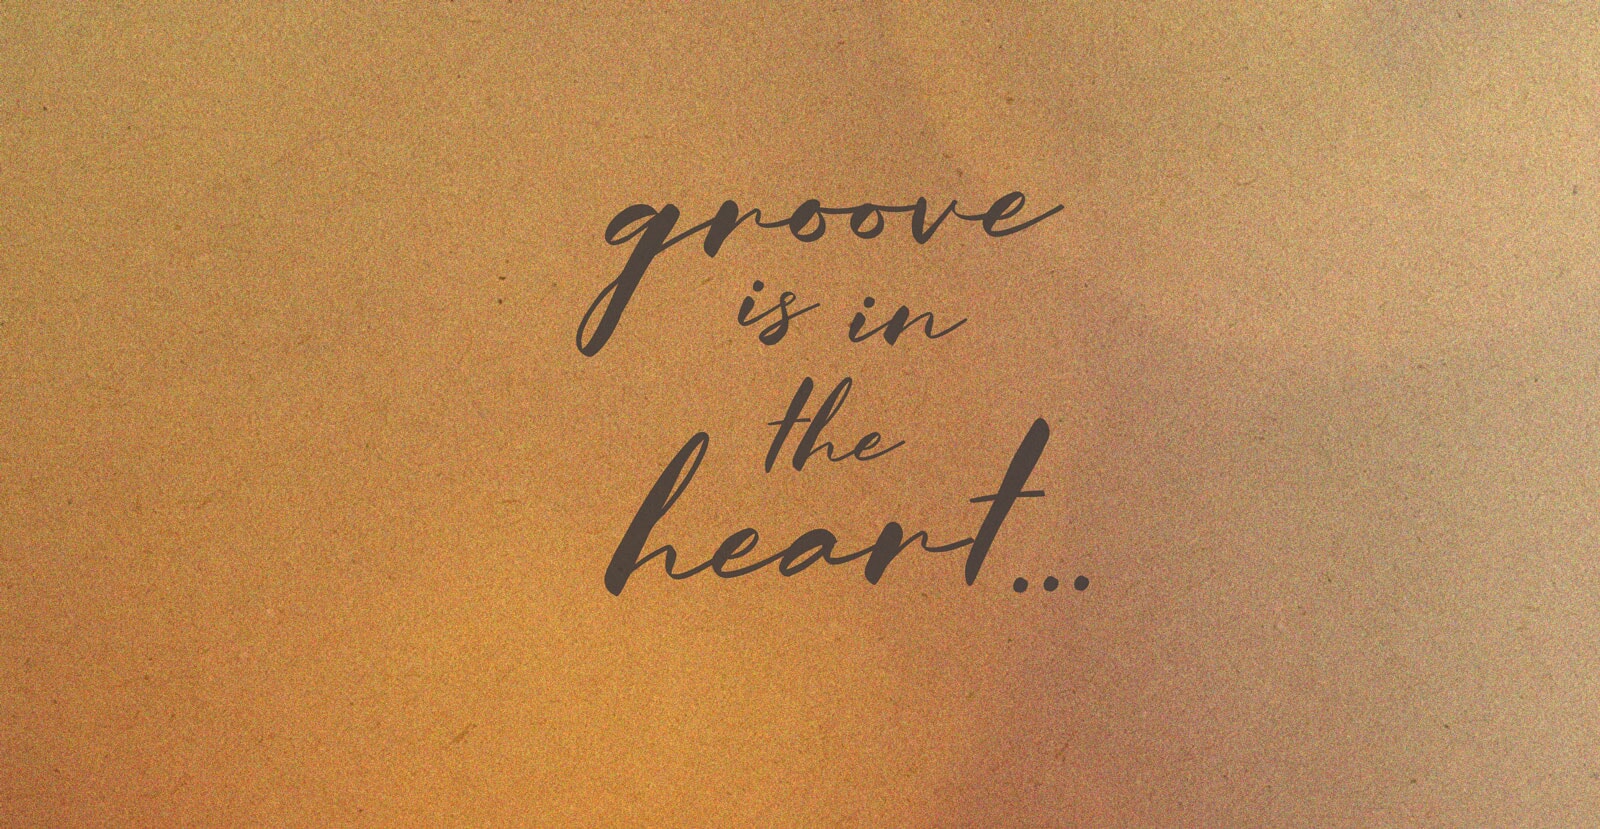 groove
is in
the
heart...